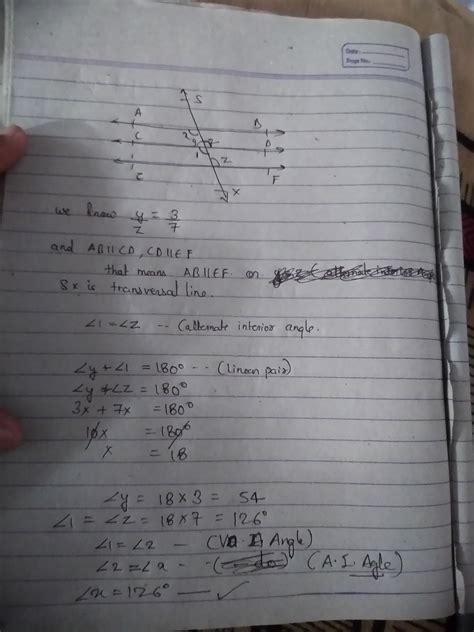 Date:
Page No.:
S
A
B
C
D
E
F
X
x
2
y
3
1
Z
we know y/z = 3/7
and AB||CD, CD||EF
that means AB||EF. on
8x is transversal line.
∠1 = ∠Z -- (alternate interior angle.
∠y + ∠1 = 180° -- (Linear pair)
∠y + ∠Z = 180°
3x + 7x = 180°
10x = 180°
x = 18
∠y = 18 × 3 = 54
∠1 = ∠Z = 18 × 7 = 126°
∠1 = ∠2 - (V Angle)
∠2 = ∠x - (A.I. Agle)
∠x = 126° — ✓